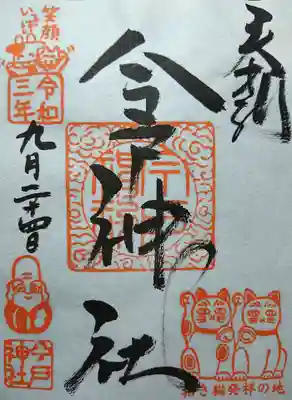 奉拝
今戸神社
笑顔
いっぱい
令和
三年
九月二十四日
今戸
神社
招き猫発祥の地